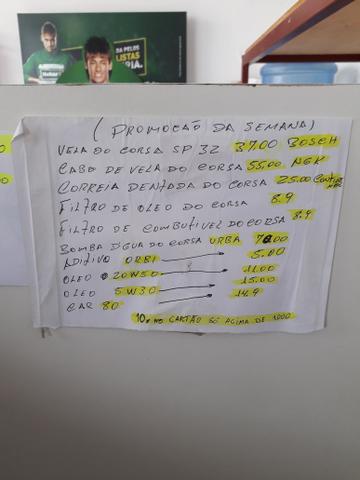 DA PELOS
LISTAS
RIA.
(PROMOCÃO DA SEMANA)
VELA DO CORSA SP 32 37.00 BOSCH
CABO DE VELA DO CORSA 55.00 NGK
CORREIA DENTADA DO CORSA 25.00
FILTRO DE OLEO DO CORSA 8.9
FILTRO DE COMBUTIVEL DO CORSA 8.9
BOMBA D'GUA DO CORSA URBA 78.00
ADITIVO ORBI 5.00
OLEO 20W50 11.00
OLEO 5W30 15.00
CAR 80 14.9
10x NO CARTÃO SÓ ACIMA DE 1000